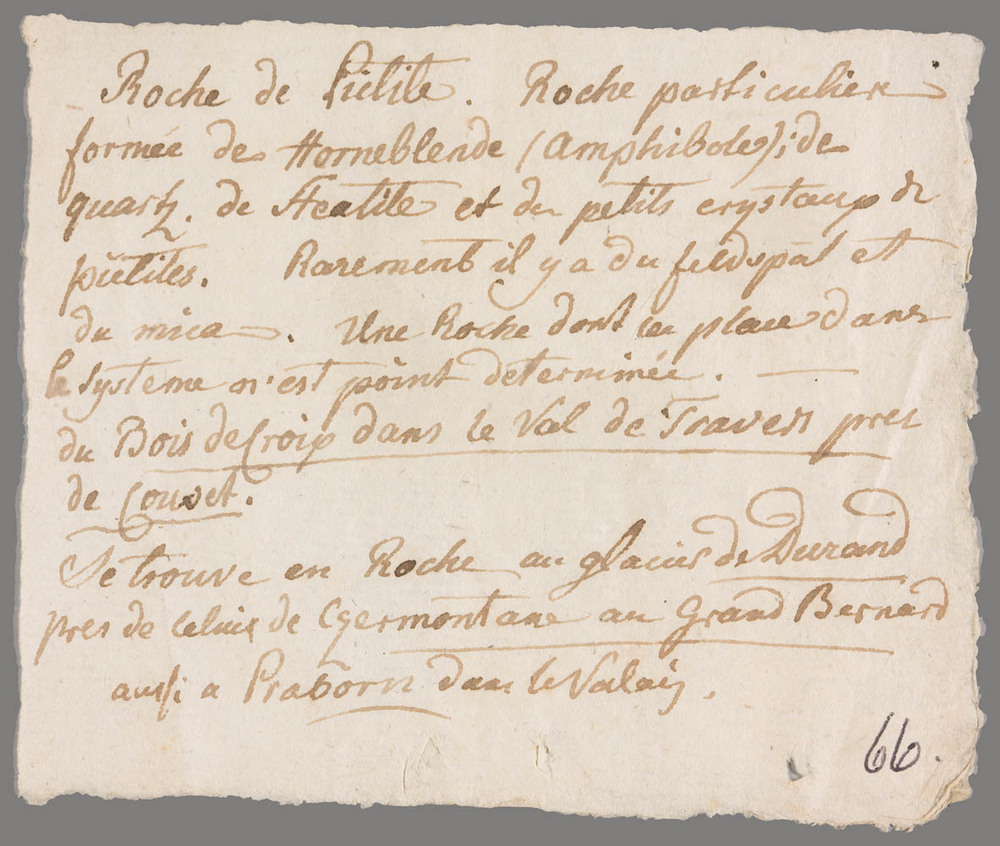 Roche de Pictite. Roche particuliere
formée de Horneblende (Amphibole); de
quartz. de Steatite et de petits crystaux de
pictites. Rarement il y a du feldspat et
du mica. Une Roche dont la place dans
le systeme n'est point determinée. —
du Bois de Croix dans le Val de Travers pres
de Couvet.
Se trouve en Roche au glacier de Durand
pres de celui de Tzermontane au Grand Bernard
aussi a Praborn dans le Valais.
66.